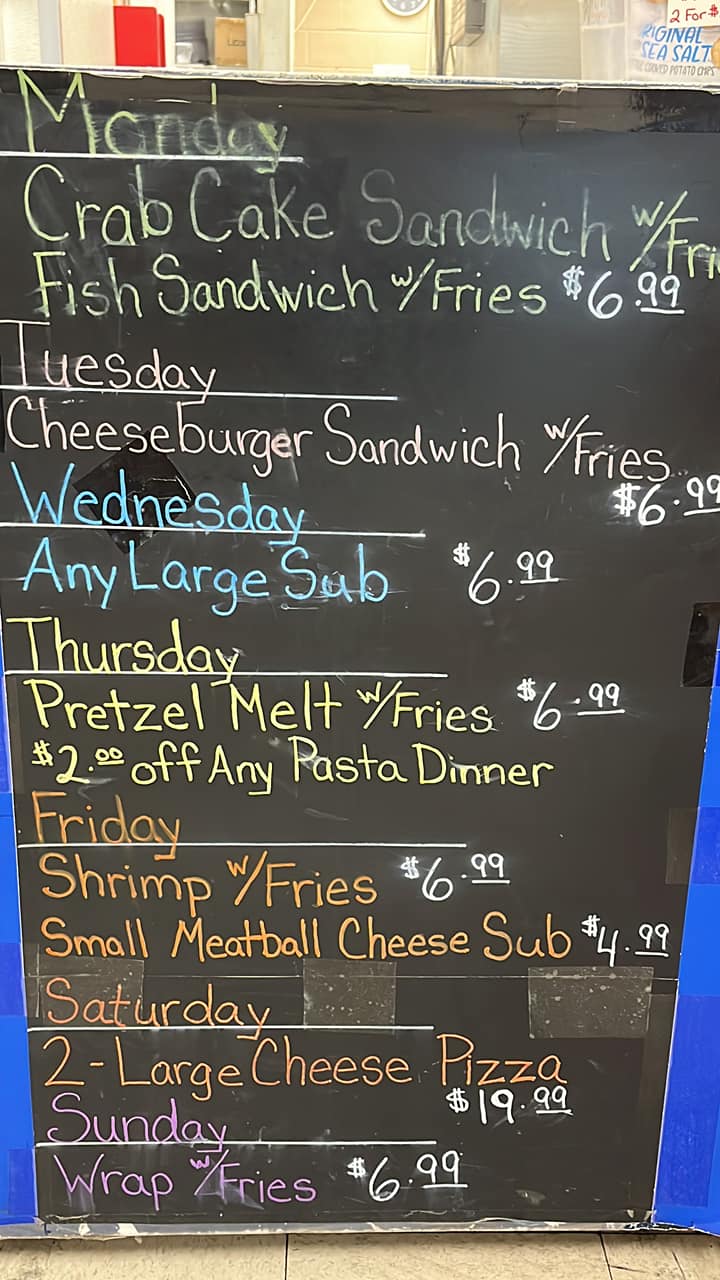 2 For $
RIGINAL
SEA SALT
Monday
Crab Cake Sandwich w/Fri
Fish Sandwich w/Fries $6.99
Tuesday
Cheeseburger Sandwich w/Fries
$6.99
Wednesday
Any Large Sub $6.99
Thursday
Pretzel Melt w/Fries $6.99
$2.00 off Any Pasta Dinner
Friday
Shrimp w/Fries $6.99
Small Meatball Cheese Sub $4.99
Saturday
2-Large Cheese Pizza
$19.99
Sunday
Wrap w/Fries $6.99